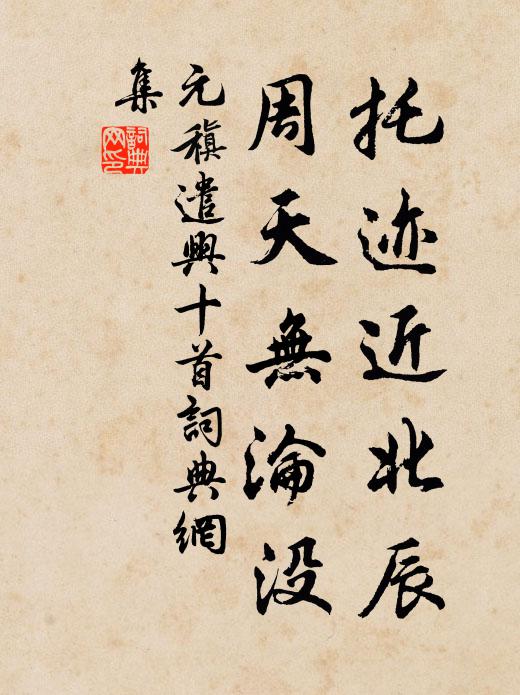 托迹近北辰
周天無淪没
元稹遣興十首詞典網
集
詞典
网印